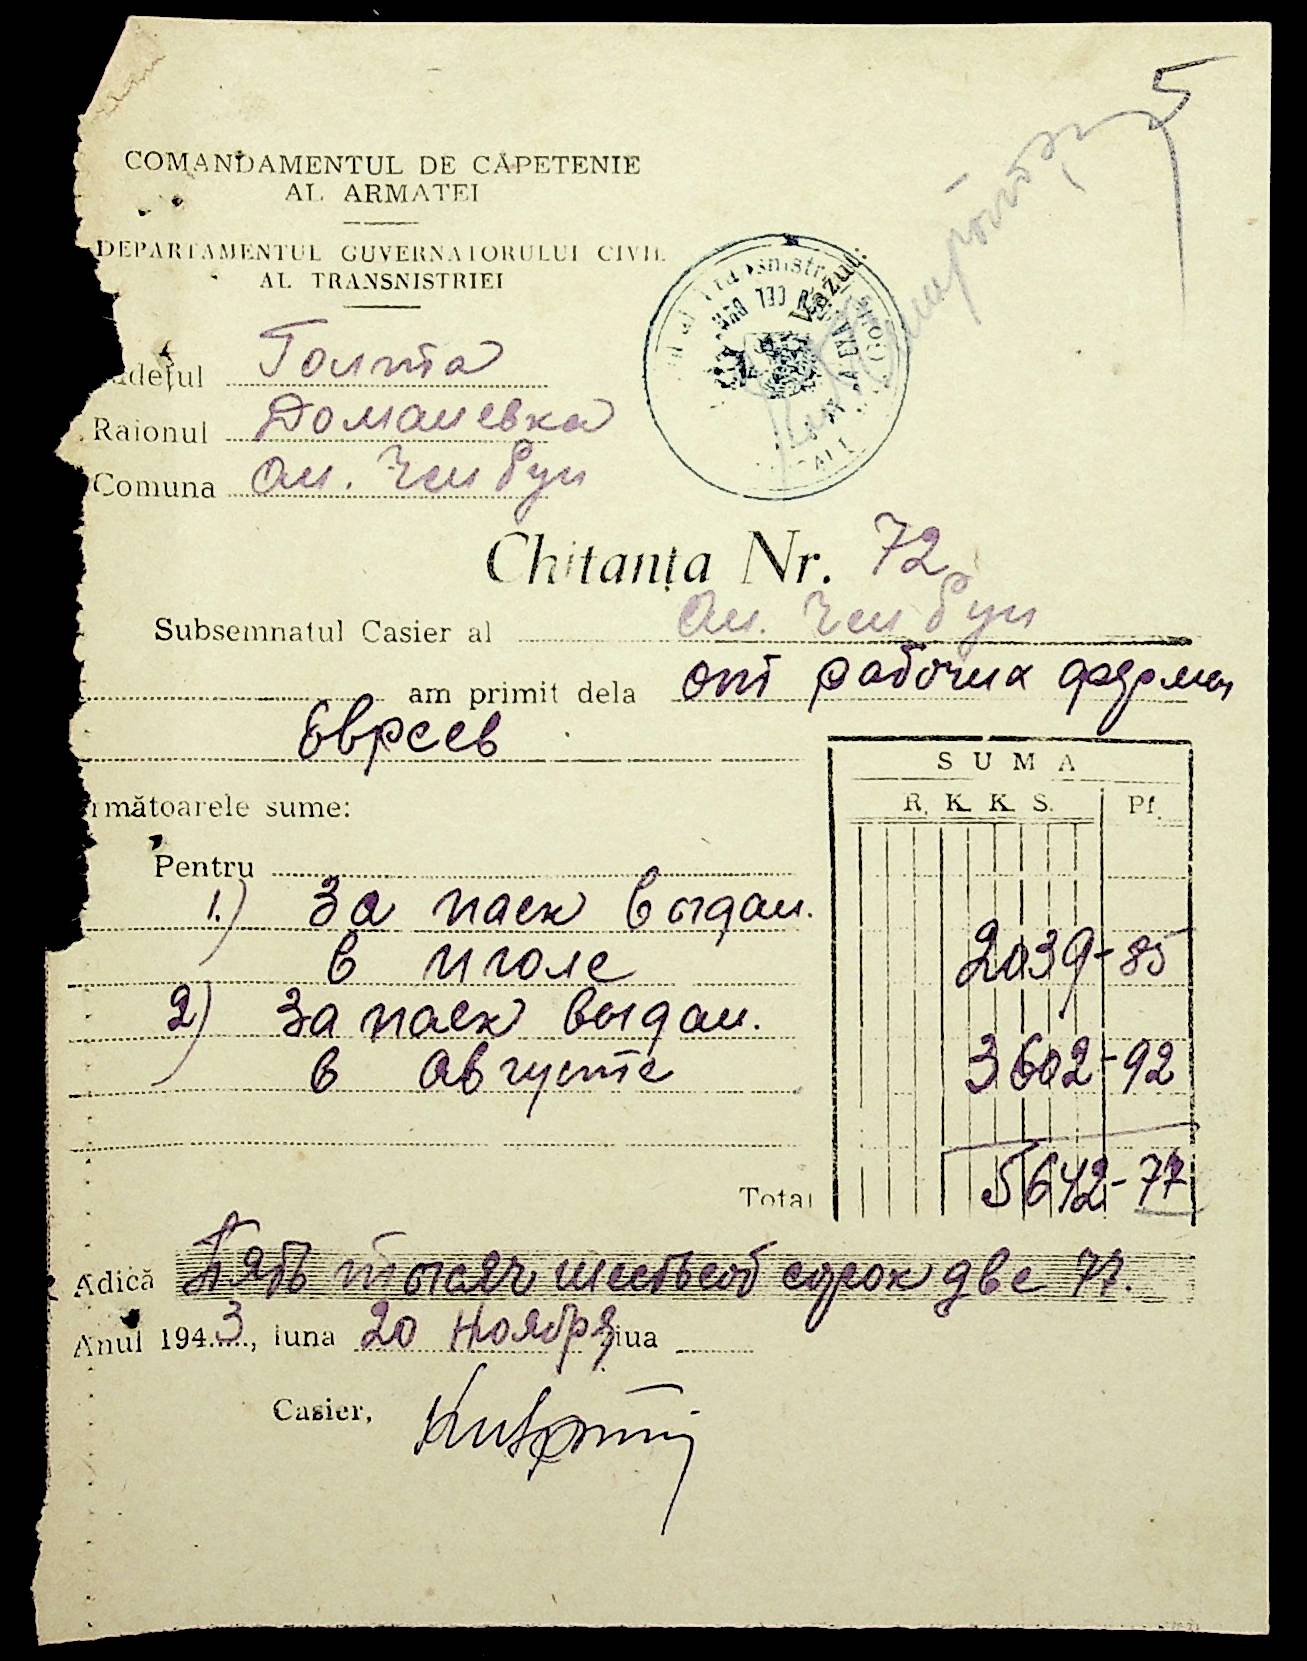 5
COMANDAMENTUL DE CĂPETENIE
AL ARMATEI
DEPARTAMENTUL GUVERNATORULUI CIVIL
AL TRANSNISTRIEI
udețul Голта
Raionul Доманевка
Comuna
Vazut:
Chitanța Nr. 72
Subsemnatul Casier al
am primit dela от рабочих фермы
Евреев
rmătoarele sume:
SUMA
R. K. K. S. Pf.
Pentru
1.) За паек выдан.
в июле 2039-85
2) За паек выдан.
в августе 3602-92
Total 5642-77
Adică Пять тысяч шестьсот сорок две 77.
Anul 1943, luna 20 Ноября ziua
Casier,